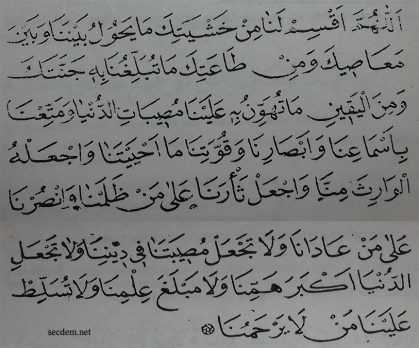 اَللّٰهُمَّ اَقْسِمْ لَنَا مِنْ خَشْيَتِكَ مَا يَحُولُ بَيْنَنَا وَبَيْنَ
مَعَاصِيكَ وَمِنْ طَاعَتِكَ مَا تُبَلِّغُنَا بِهِ جَنَّتَكَ
وَمِنَ الْيَقِينِ مَا تُهَوِّنُ بِهِ عَلَيْنَا مُصِيبَاتِ الدُّنْيَا وَمَتِّعْنَا
بِاَسْمَاعِنَا وَاَبْصَارِنَا وَقُوَّتِنَا مَا اَحْيَيْتَنَا وَاجْعَلْهُ
الْوَارِثَ مِنَّا وَاجْعَلْ ثَأْرَنَا عَلٰى مَنْ ظَلَمَنَا وَانْصُرْنَا
عَلٰى مَنْ عَادَانَا وَلَا تَجْعَلْ مُصِيبَتَنَا فِى دِينِنَا وَلَا تَجْعَلِ
الدُّنْيَا اَكْبَرَ هَمِّنَا وَلَا مَبْلَغَ عِلْمِنَا وَلَا تُسَلِّطْ
عَلَيْنَا مَنْ لَا يَرْحَمُنَا
secdem.net